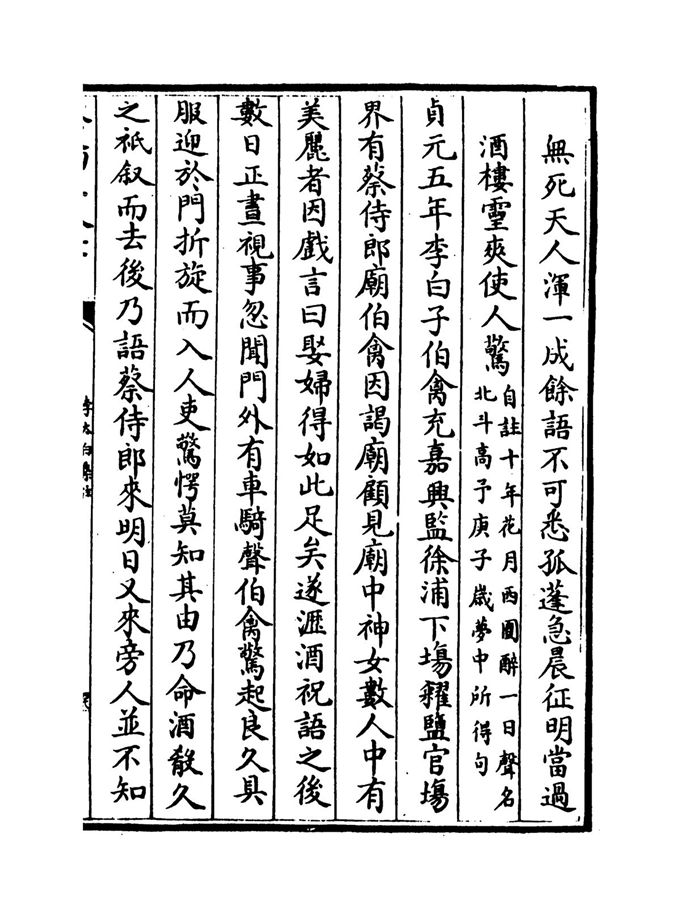 無死天人渾一成餘語不可悉孤蓬急晨征明當過
酒樓靈爽使人驚自註十年花月西園醉一日聲名
北斗高予庚子歲夢中所得句
貞元五年李白子伯禽充嘉興監徐浦下塲糴鹽官塲
界有蔡侍郎廟伯禽因謁廟顧見廟中神女數人中有
美麗者因戲言曰娶婦得如此足矣遂瀝酒祝語之後
數日正晝視事忽聞門外有車騎聲伯禽驚起良久具
服迎於門折旋而入人吏驚愕莫知其由乃命酒殽久
之祇叙而去後乃語蔡侍郎來明日又來旁人並不知
李太白集注